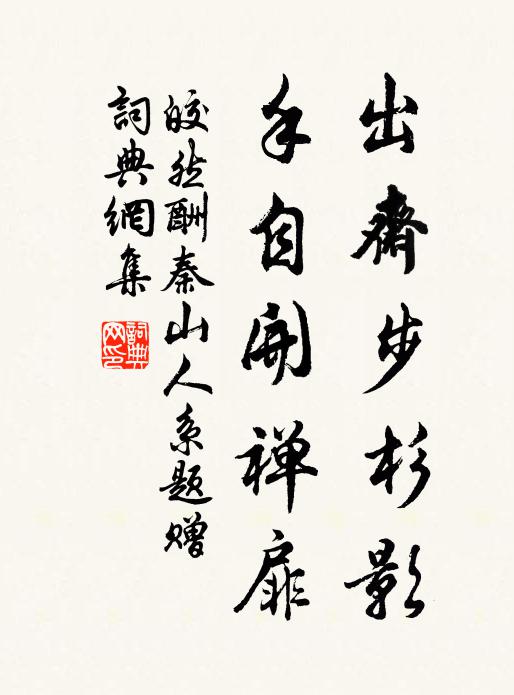 出齋步杉影
手自開禪扉
皎然酬秦山人系題贈
詞典網集
詞典網印